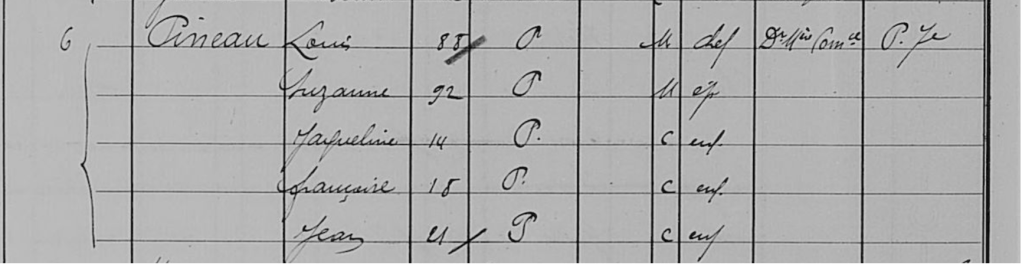 6 Pineau Louis 88 P M chef Dr Mis Comce P. Je
Suzanne 92 P M ép
Jacqueline 14 P. C enf.
Françoise 18 P. C enf.
Jean 21 P C enf